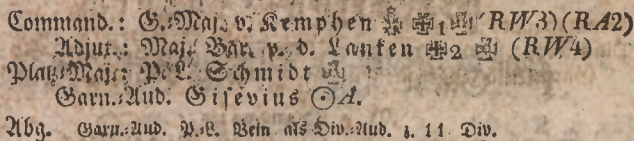 Command.: G.-Maj. v. Kemphen 1 (RW3)(RA2)
Adjut.: Maj. Bar. v. d. Lanken 2 (RW4)
Platz-Maj.: P.L. Schmidt
Garn.-Aud. Gisevius ☉A.
Abg. Garn.-Aud. P.L. Bein als Div.-Aud. z. 11 Div.